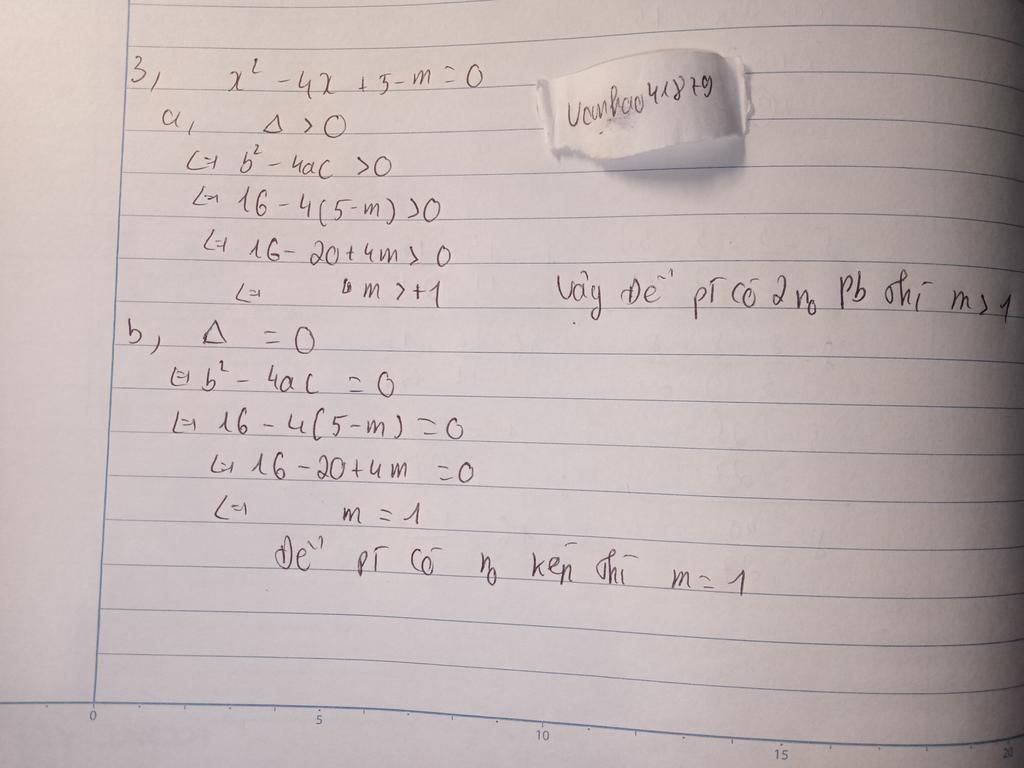 3, x² - 4x + 5 - m = 0
vanhao41879
a, Δ > 0
<=> b² - 4ac > 0
<=> 16 - 4(5-m) > 0
<=> 16 - 20 + 4m > 0
<=> m > +1 Vậy Để pT có 2 no Pb thì m > 1
b, Δ = 0
<=> b² - 4ac = 0
<=> 16 - 4(5-m) = 0
<=> 16 - 20 + 4m = 0
<=> m = 1
Để pT có no kép thì m = 1
0 5 10 15 20